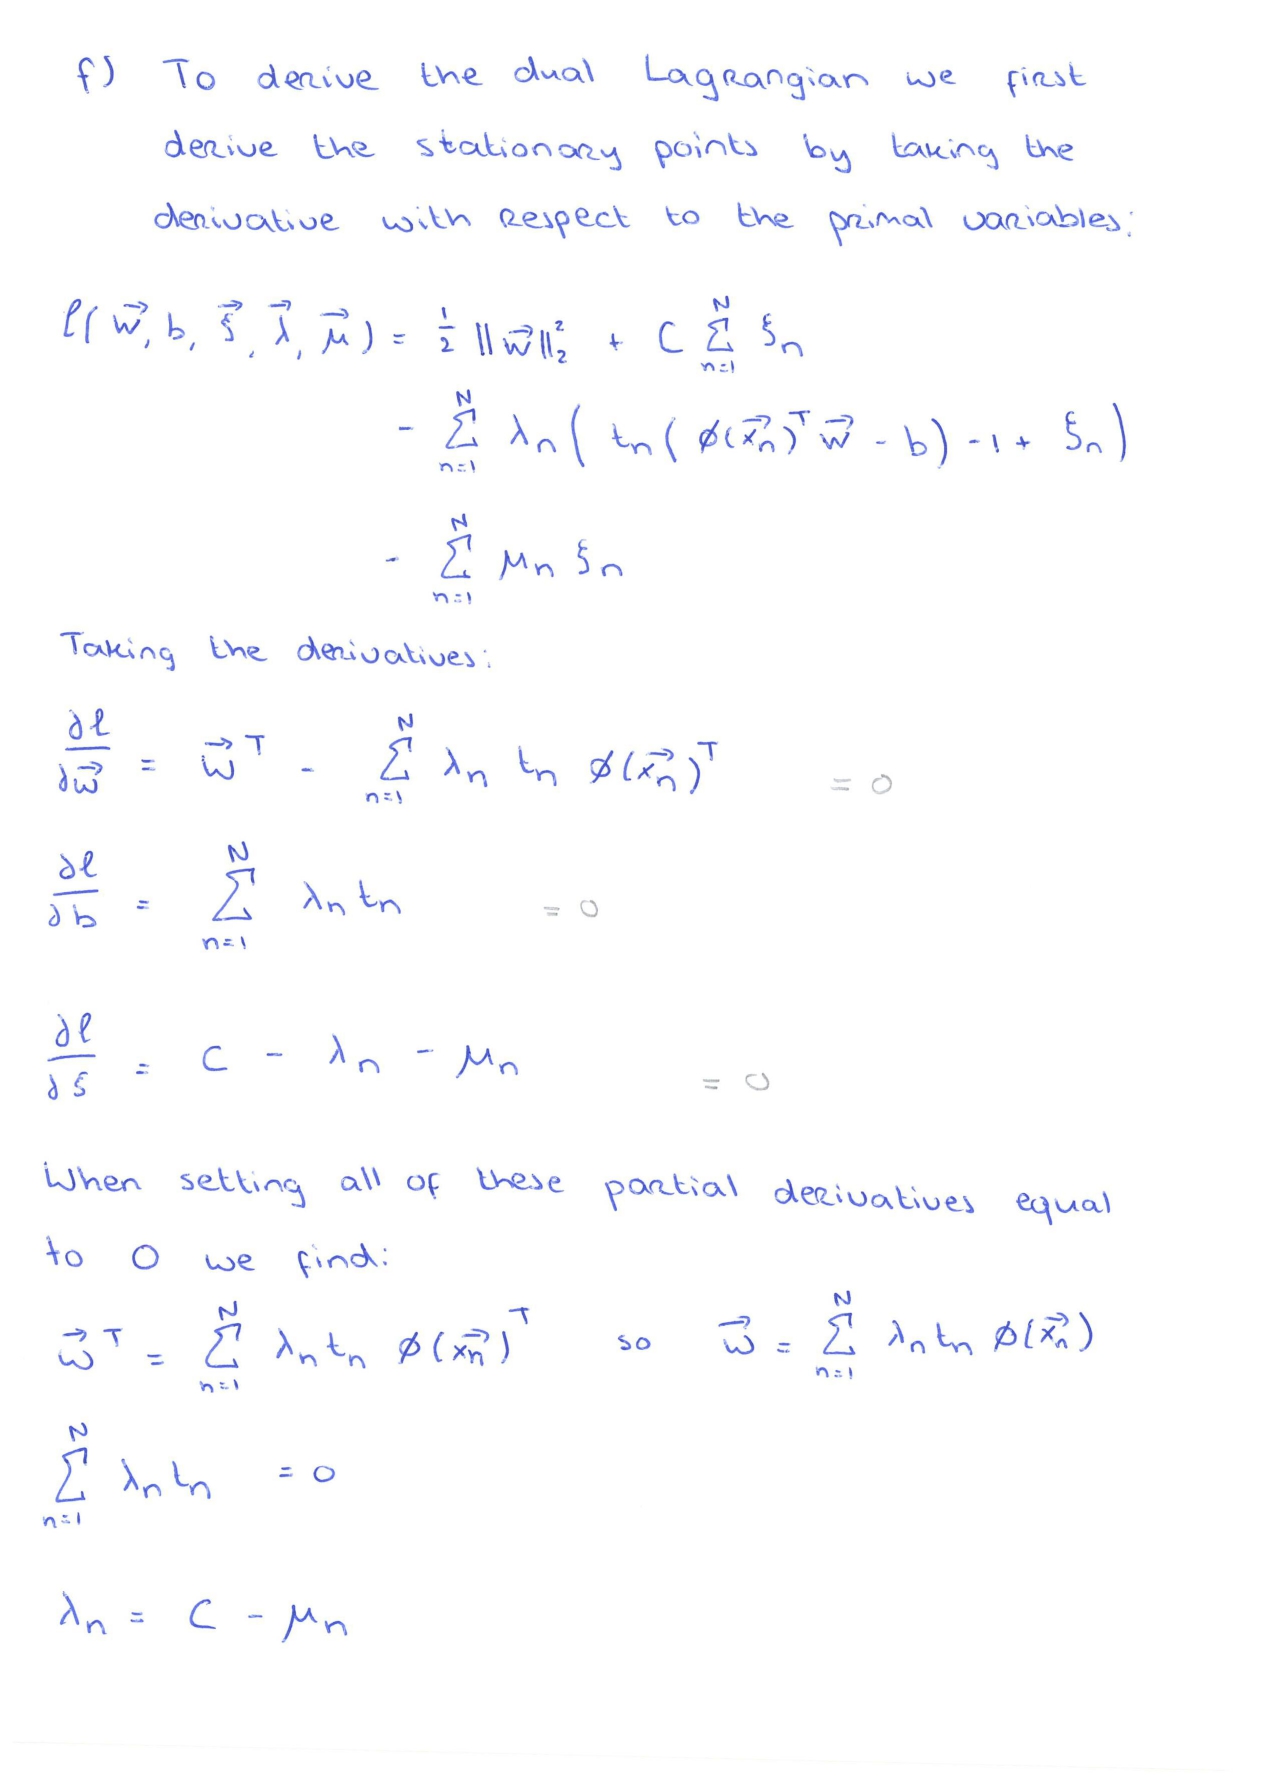 f) To derive the dual Lagrangian we first
derive the stationary points by taking the
derivative with respect to the primal variables:
ℓ(w⃗, b, ξ⃗, λ⃗, μ⃗) = ½ ||w⃗||₂² + C ∑_{n=1}^{N} ξₙ
- ∑_{n=1}^{N} λₙ( tₙ( φ(x⃗ₙ)ᵀ w⃗ - b) - 1 + ξₙ)
- ∑_{n=1}^{N} μₙ ξₙ
Taking the derivatives:
∂ℓ/∂w⃗ = w⃗ᵀ - ∑_{n=1}^{N} λₙ tₙ φ(x⃗ₙ)ᵀ = 0
∂ℓ/∂b = ∑_{n=1}^{N} λₙ tₙ = 0
∂ℓ/∂ξ = C - λₙ - μₙ = 0
When setting all of these partial derivatives equal
to 0 we find:
w⃗ᵀ = ∑_{n=1}^{N} λₙ tₙ φ(x⃗ₙ)ᵀ so w⃗ = ∑_{n=1}^{N} λₙ tₙ φ(x⃗ₙ)
∑_{n=1}^{N} λₙ tₙ = 0
λₙ = C - μₙ